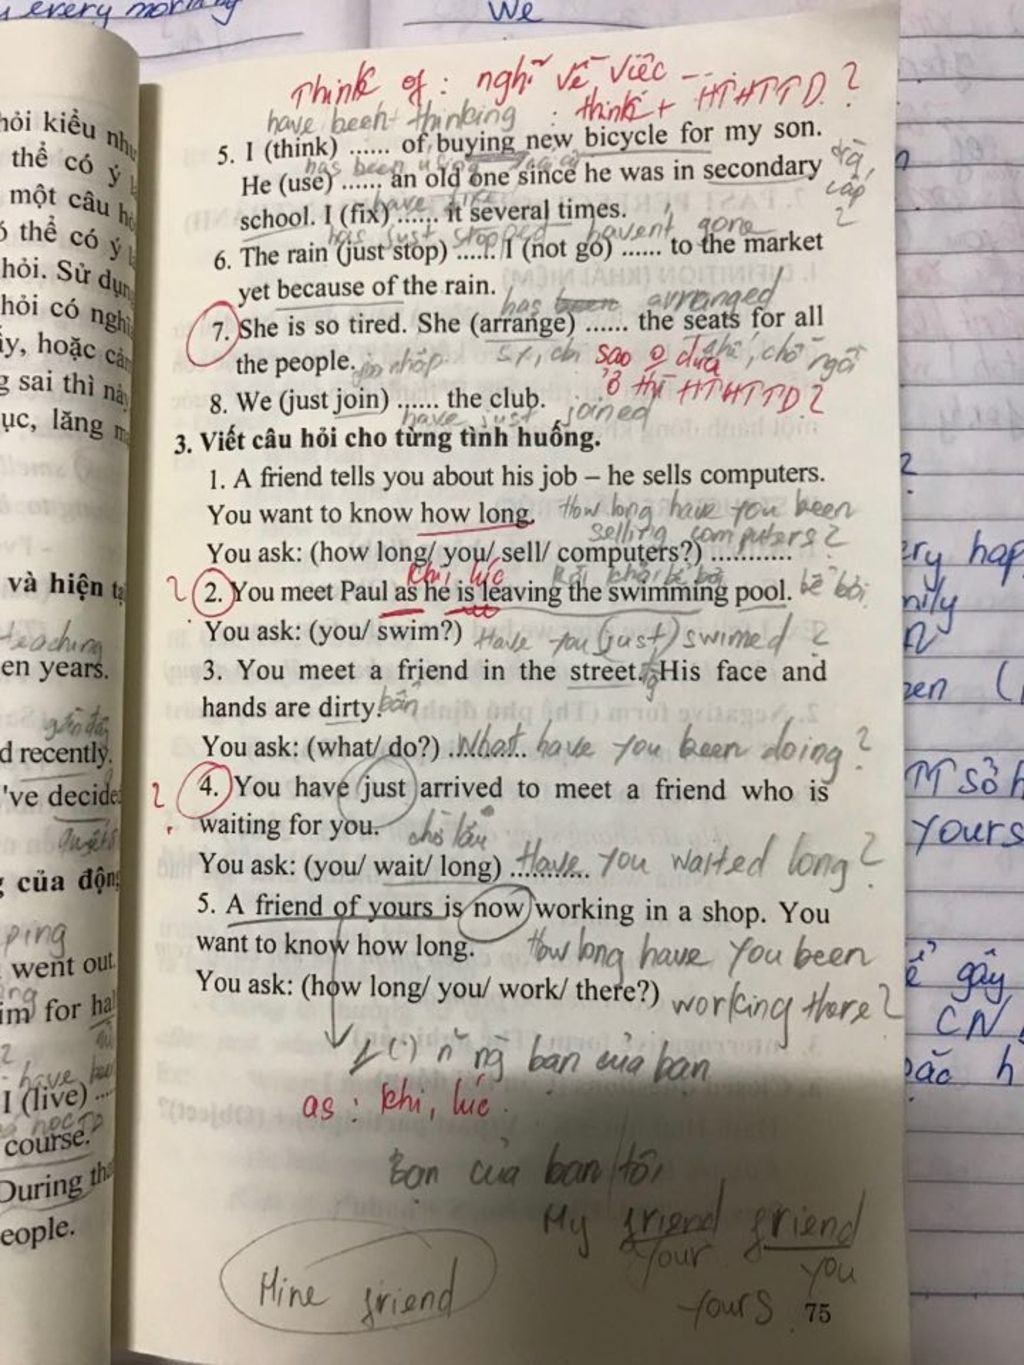 every morning
We
Think of : nghĩ về việc
have been thinking : think + HTHTTD. ?
5. I (think) ...... of buying new bicycle for my son.
has been using
He (use) ...... an old one since he was in secondary
cấp 2
have
school. I (fix) ...... it several times.
has just stopped haven't gone
6. The rain (just stop) ...... I (not go) ...... to the market
yet because of the rain.
has been arranged
7. She is so tired. She (arrange) ...... the seats for all
the people.
sao o dùng chỗ ngồi
ở thì HTHTTD ?
gia nhập
8. We (just join) ...... the club.
have just joined
3. Viết câu hỏi cho từng tình huống.
1. A friend tells you about his job – he sells computers.
You want to know how long. How long have you been
selling computers ?
You ask: (how long/ you/ sell/ computers?) ............
khi, lúc
2. You meet Paul as he is leaving the swimming pool. bể bơi
You ask: (you/ swim?) Have you (just) swimed ?
3. You meet a friend in the street. His face and
hands are dirty. bẩn
You ask: (what/ do?) ..What.. have you been doing ?
4. You have just arrived to meet a friend who is
waiting for you. chờ lâu
You ask: (you/ wait/ long) ........... Have you waited long ?
5. A friend of yours is now working in a shop. You
want to know how long. How long have you been
You ask: (how long/ you/ work/ there?) working there ?
bạn của bạn
as : khi, lúc.
Bạn của bạn tôi
My friend friend
your you
Mine friend
yours
75
hỏi kiểu như
thể có ý
một câu hỏ
ó thể có ý
hỏi. Sử dụn
hỏi có nghĩ
ấy, hoặc cả
g sai thì nà
ục, lăng m
và hiện tạ
teaching
en years.
gần đây
d recently.
've decide
quyết
g của độn
ping
went out.
im for ha
have
I (live) ...
course.
During th
eople.
2
ery hap
mily
en (
TT sở h
yours
ể gây
CN
oặc h